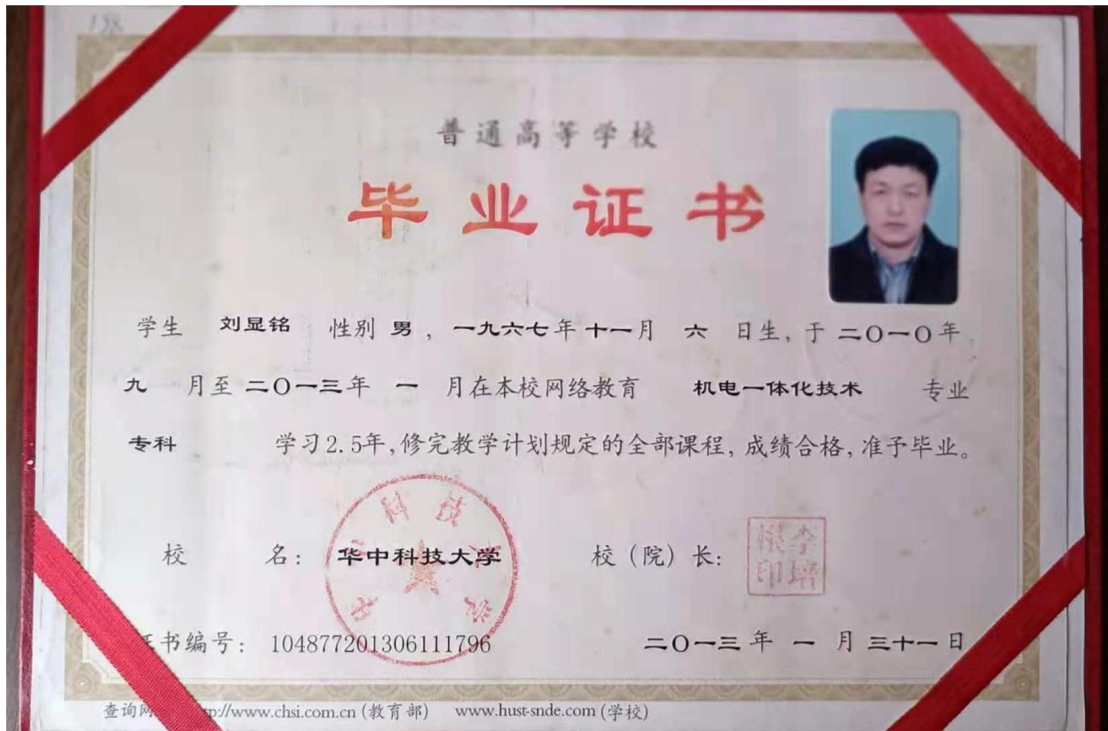 198
普通高等学校
毕业证书
学生 刘显铭 性别 男，一九六七年十一月 六 日生，于二〇一〇年
九 月至二〇一三年 一 月在本校网络教育 机电一体化技术 专业
专科 学习2.5年，修完教学计划规定的全部课程，成绩合格，准予毕业。
校 名： 华中科技大学 校（院）长： 李培根印
证书编号： 104877201306111796 二〇一三年 一 月 三十一日
查询网 http://www.chsi.com.cn (教育部) www.hust-snde.com (学校)